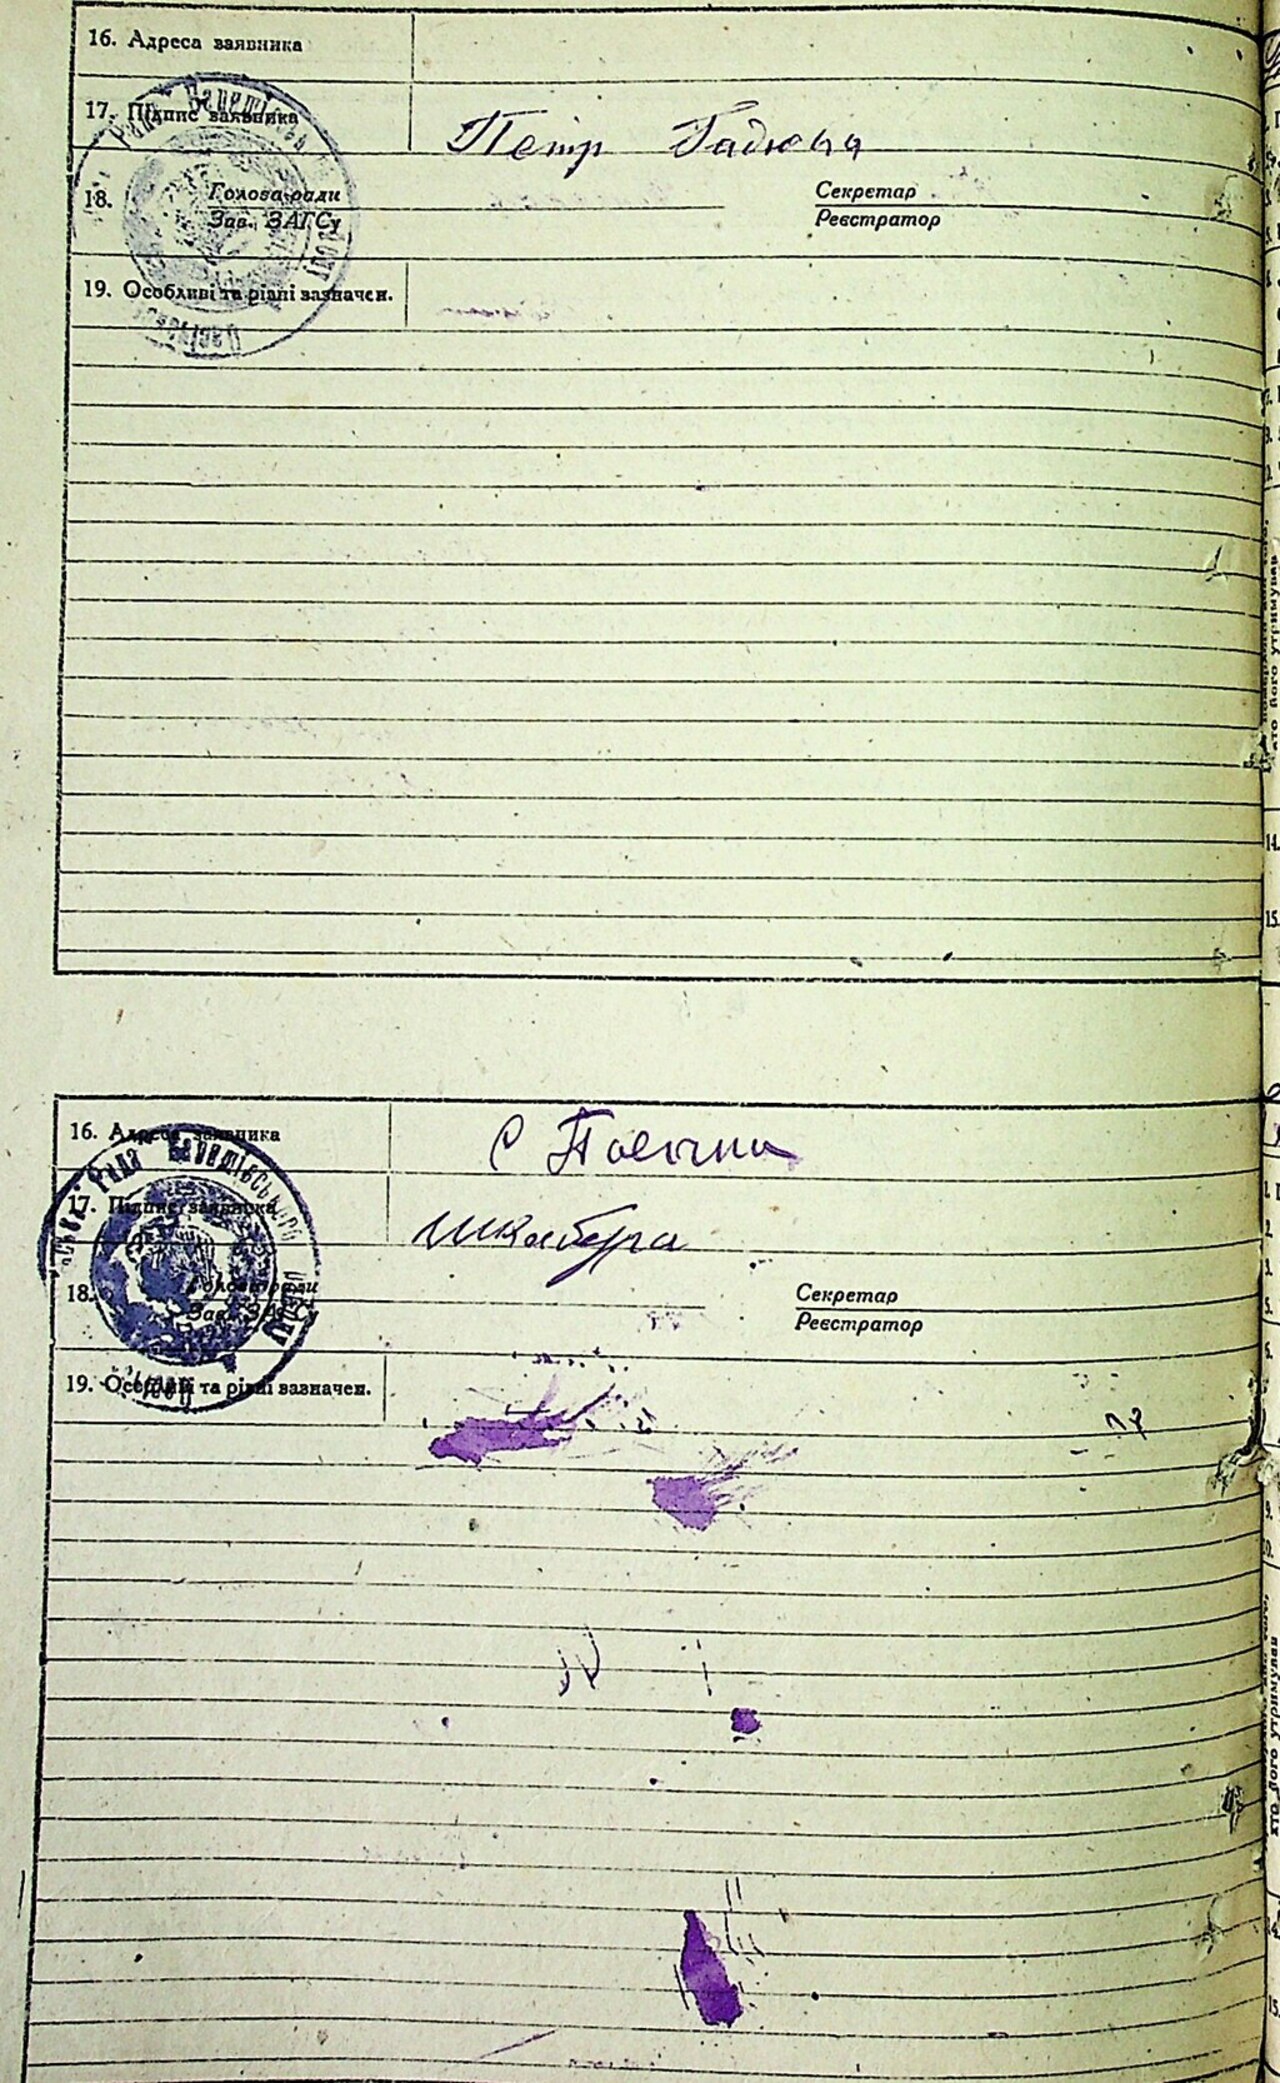 16. Адреса заявника
17. Підпис заявника
Петр
18. Голова ради
Зав. ЗАГСу
Секретар
Реєстратор
19. Особливі та різні зазначен.
16. Адреса заявника
с
17. Підпис заявника
Шкабура
18. Голова ради
Зав. ЗАГСу
Секретар
Реєстратор
19. Особливі та різні зазначен.
14.
15.